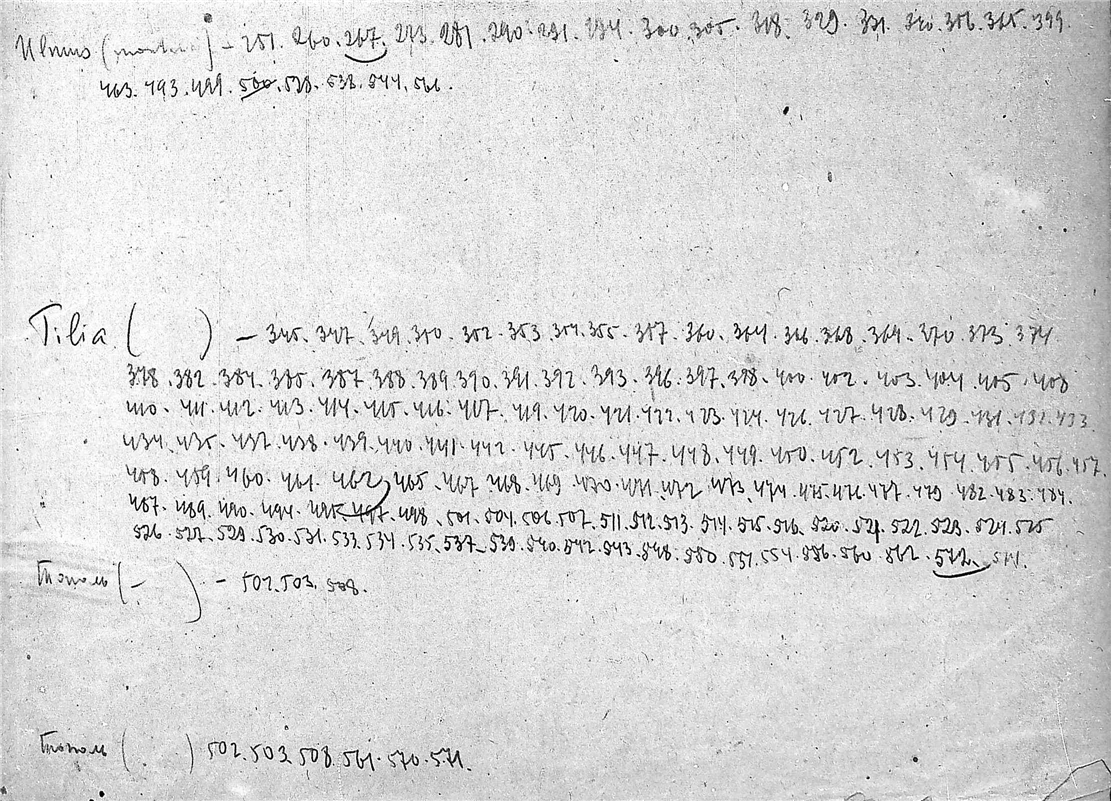 Ulmus (montana) – 251. 260. 267. 273. 281. 290. 291. 294. 300. 305. 318. 329. 331. 340. 356. 365. 399.
463. 493. 499. 500. 528. 538. 544. 566.
Tilia ( ) – 345. 347. 349. 350. 352. 353. 354. 355. 357. 360. 364. 366. 368. 369. 370. 373. 374.
378. 382. 384. 385. 387. 388. 389. 390. 391. 392. 393. 396. 397. 398. 400. 402. 403. 404. 405. 408
410. 411. 412. 413. 414. 415. 416. 417. 419. 420. 421. 422. 423. 424. 426. 427. 428. 429. 431. 432. 433.
434. 435. 437. 438. 439. 440. 441. 442. 445. 446. 447. 448. 449. 450. 452. 453. 454. 455. 456. 457.
458. 459. 460. 461. 462, 465. 467 468. 469 470. 471. 472 473. 474. 475. 476. 477. 479 482. 483. 484.
487. 489. 490. 494. 495. 497. 498. 501. 504. 506. 507. 511. 512. 513. 514. 515. 516. 520. 521. 522. 523. 524. 525
526. 527. 529. 530. 531. 533. 534. 535. 537. 539. 540. 542. 543. 548. 550. 551. 554. 556. 560. 562. 572.
Тополь (– ) – 502. 503. 508.
Тополь ( ) 502. 503. 508. 561. 570. 571.